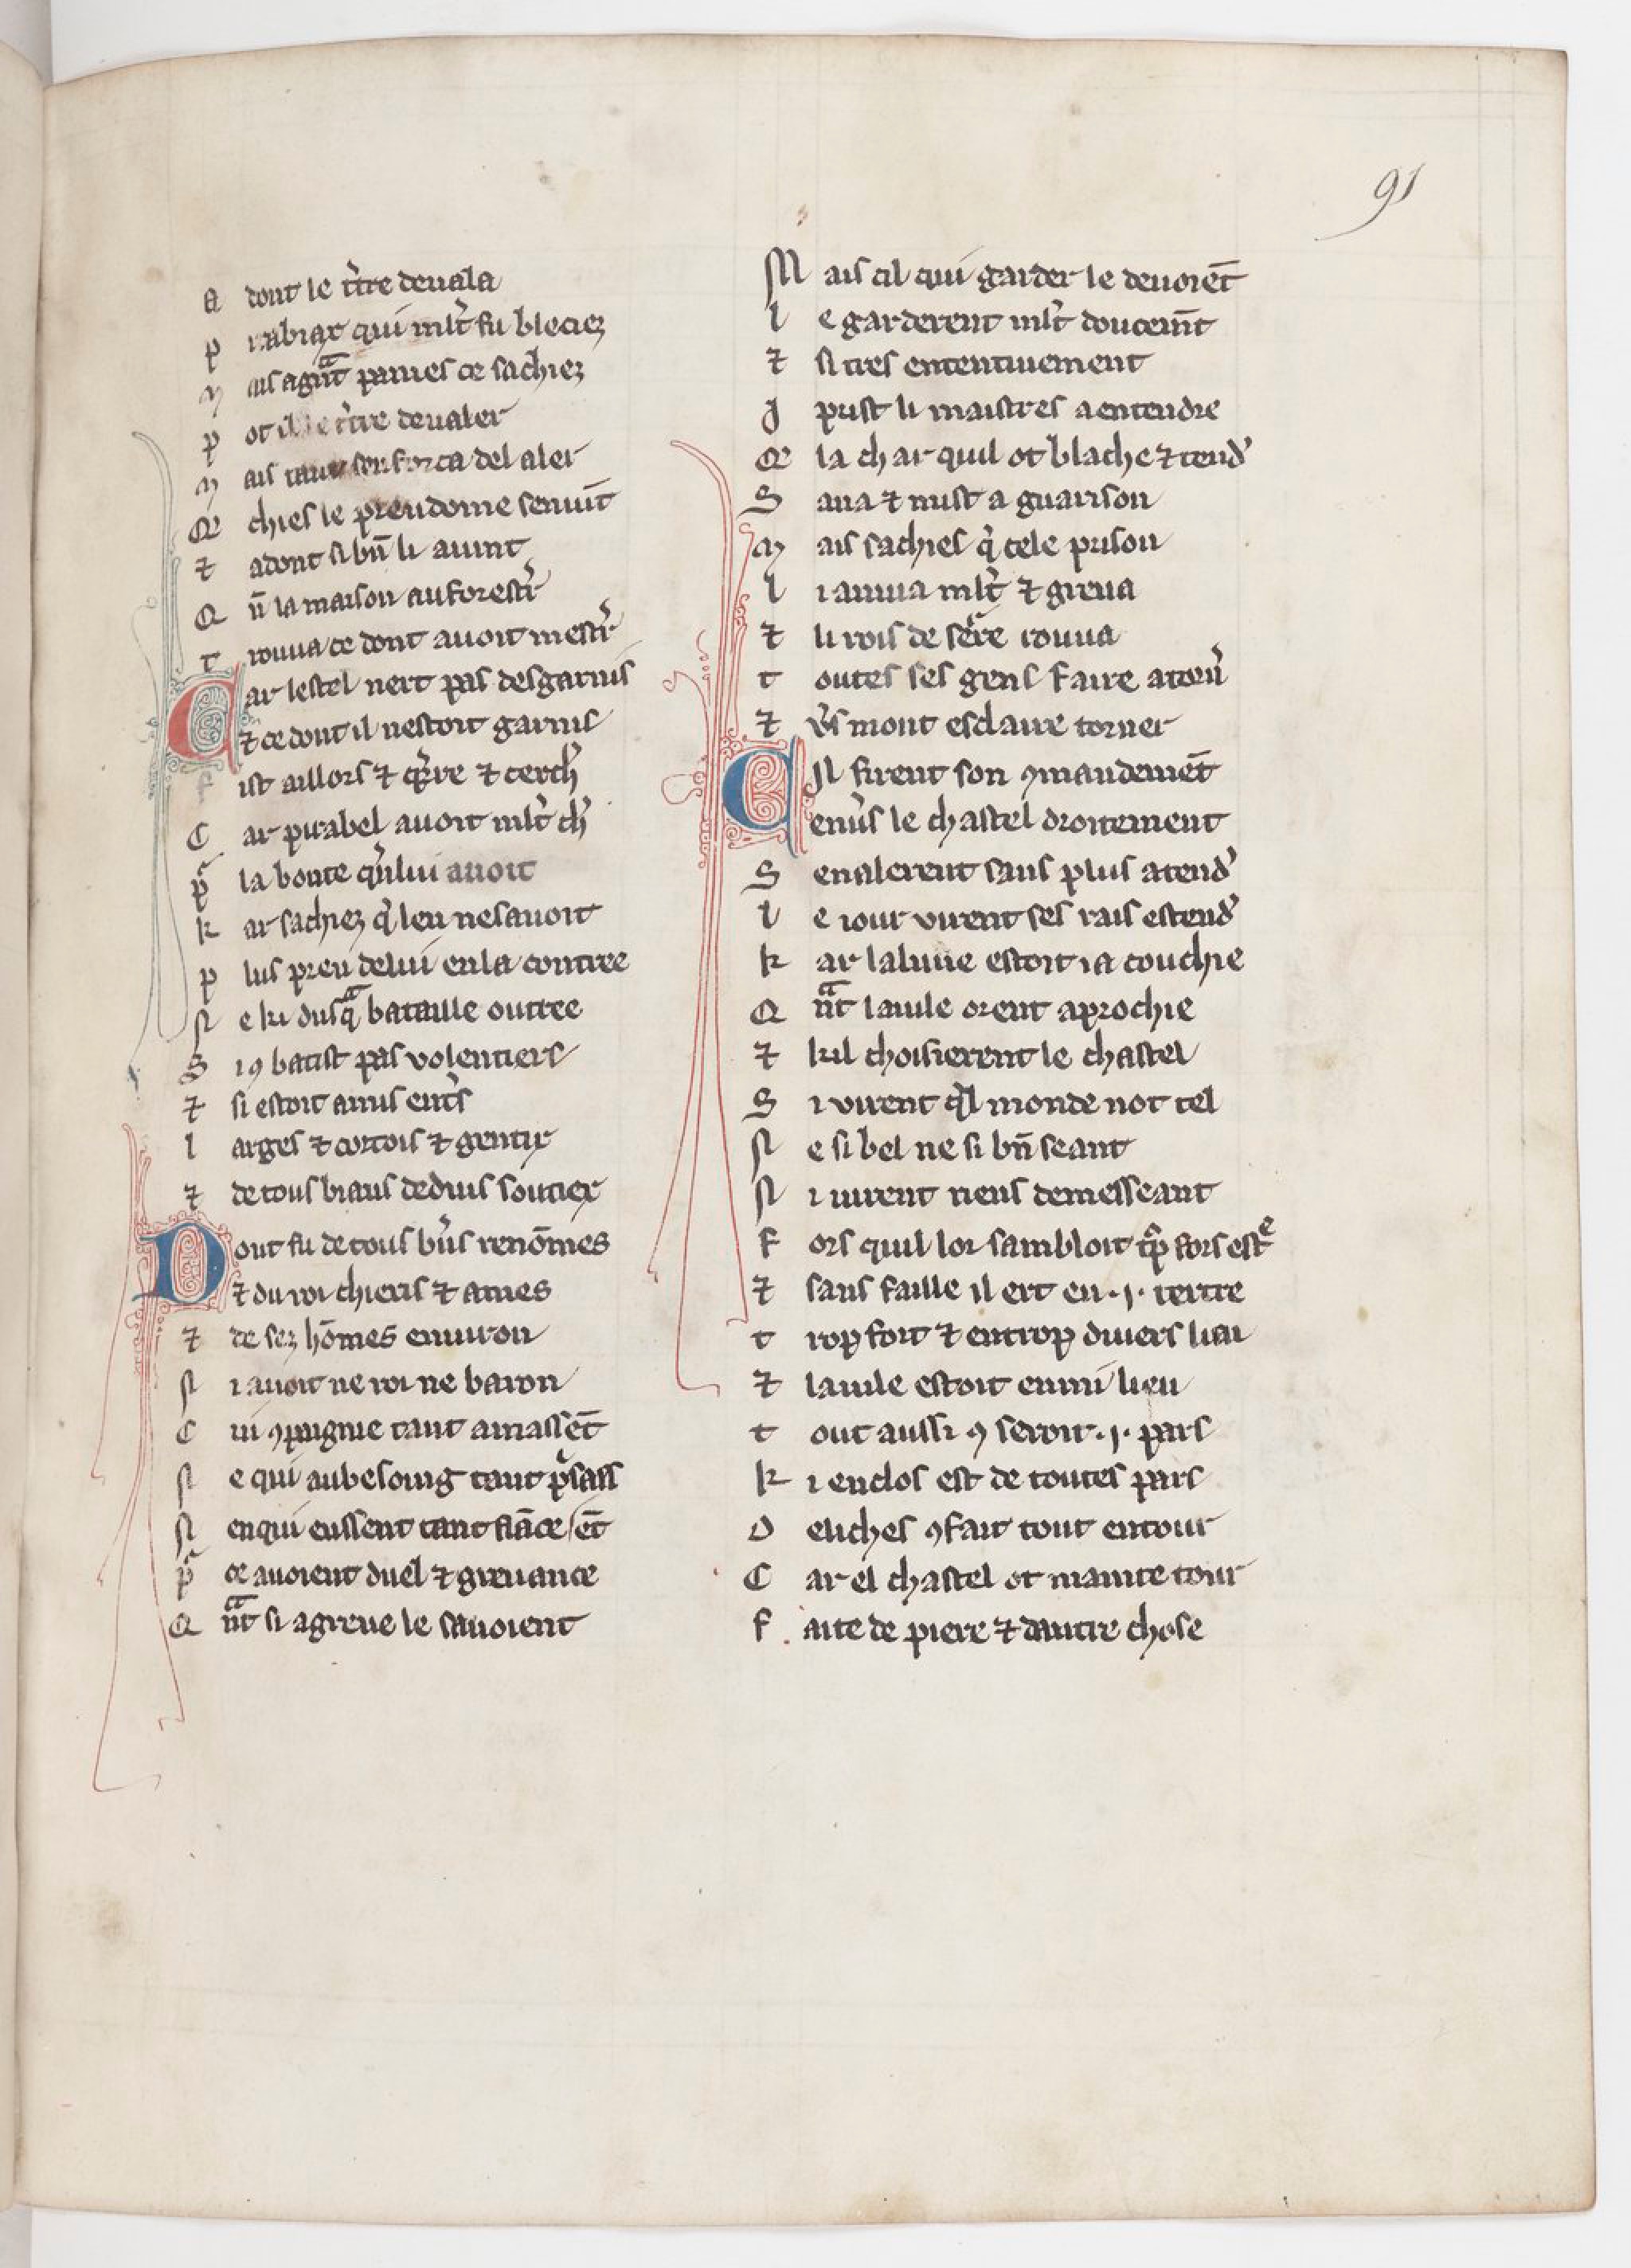 91
A dont le tertre deuala
P irabiax qui ml̃t fu bleciez
M ais agñt paines ce sachiez
P ot il le tertre deualer
M ais tant senforca del aler
Q chies le preudome senuint
⁊ adont si bñ li auint
Q ñ la maison au forestr̃
T rouua ce dont auoit mestr̃
Car lestel nert pas desgarnis
⁊ ce dont il nestoit garnis
F ist aillors ⁊ q̃rre ⁊ cerch̾
C ar pirabel auoit ml̃t ch̾
P̾ la bonte q̃n lui auoit
K ar sachiez q̃ leu ne sauoit
P lus preu de lui en la contree
N e ki dusqᵃ bataille outree
S i ꝯbatist pas volentiers
⁊ si estoit amis ent̾s
L arges ⁊ cortois ⁊ gentix
⁊ de tous biaus deduis soutiex
Dont fu de tous b̾us renõmes
⁊ du roi chieris ⁊ ames
⁊ de sez hõmes enuiron
N i auoit ne roi ne baron
C ui ꝯpaignie tant amassẽt
N e qui au besoing tant p̾sass
N en qui eussent tant fiãce / ẽt
P̾ ce auoient duel ⁊ greuance
Q ñᵃt si agreue le sauoient
M ais cil qui garder le deuoiẽt
L e garderent ml̃t doucem̃t
⁊ si tres ententiuement
J prist li maistres a entendre
Q la char quil ot blãche ⁊ tend̾
S ana ⁊ mist a guarison
M ais sachies q̃ cele prison
L i anuia ml̃t ⁊ greua
⁊ li rois de serᵃe rouua
T outes ses gens faire atorñ
⁊ v̾s mont esclaire torner
CJl firent son ꝯmandemẽt
enu̾s le chastel droitement
S en alerent sans plus atend̾
L e iour virent ses rais estend̾
K ar la lune estoit ia couchie
Q ñᵃt la uile orent aprochie
⁊ kil choisierent le chastel
S i virent q̃l monde not tel
N e si bel ne si bñ seant
N i uirent riens demesseant
F ors quil lor sambloit t̾p fors estᵉ
⁊ sans faille il ert en .j. tertre
T rop fort ⁊ en trop diuers liu
⁊ la uile estoit enmi lieu
T out aussi ꝯ seroit .j. pars
K i enclos est de toutes pars
D eliches ꝯfait tout entour
C ar el chastel ot mainte tour
F aite de piere ⁊ dautre chose